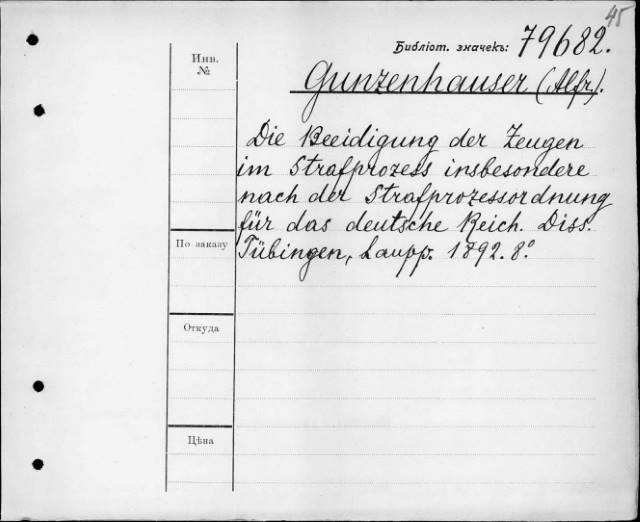 45
Библіот. значекъ: 79682.
Инв.
№
Gunzenhauser (Alfr.).
Die Beeidigung der Zeugen
im Strafprozess insbesondere
nach der Strafprozessordnung
für das deutsche Reich. Diss.
Tübingen, Laupp. 1892. 8.°
По заказу
Откуда
Цѣна